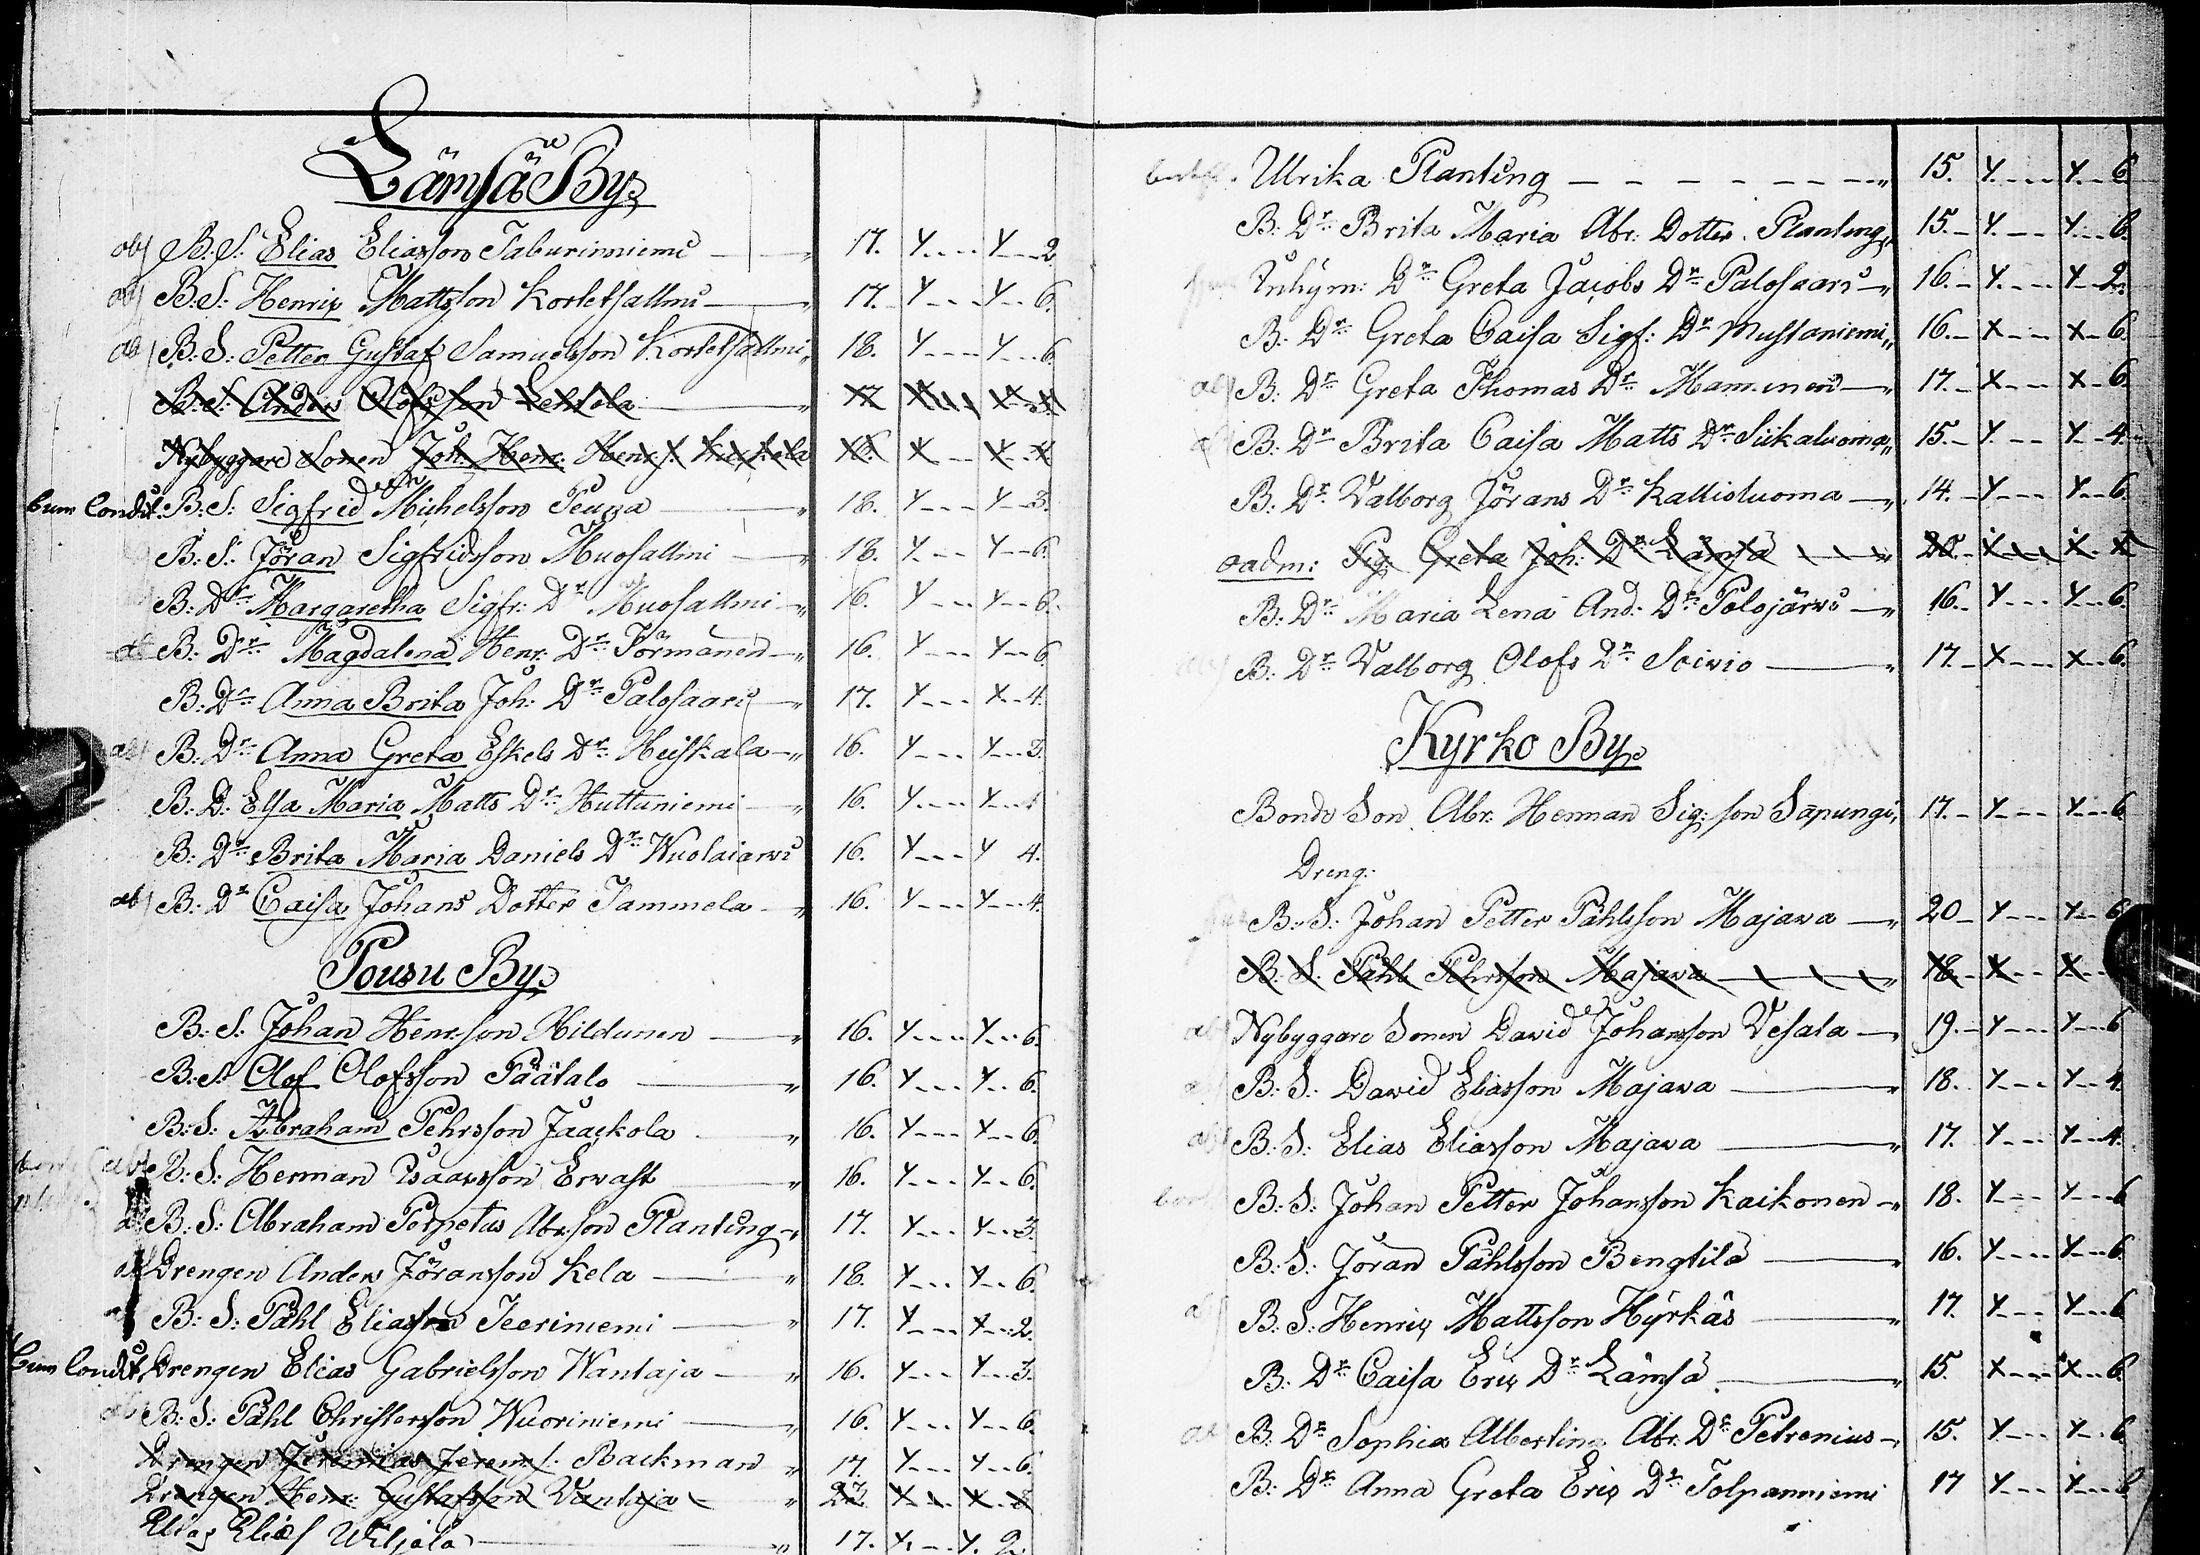 Lämsä By
abs B: S: Elias Eliasson Taburinniemi 17. Y Y 2.
abs B: S: Henric Mattsson Kortetsallmi 17. Y Y 6.
abs B: S: Petter Gustaf Samuelsson Kortetsallmi 18. Y Y 6.
B: S: Anders Olofsson Lehtola 17. X X 3.
Nybyggare Sonen Joh: Henr: Henr: s. X X
Cum Condit. B: S: Sigfrid Michelsson Peura 18. Y Y 3.
B: S: Jöran Sigfridsson Muosallmi 18. Y Y 6.
B: Dr Margaretha Sigfr: Dr Muosallmi 16. Y Y 6.
B: Dr Magdalena Henr: Dr Törmänen 16. Y Y 6.
B: Dr Anna Brita Joh: Dr Palosaari 17. Y X 4.
abs B: Dr Anna Greta Eskels Dr Heiskala 16. Y Y 3.
B: D: Elsa Maria Matts Dr Huttuniemi 16. Y Y
B: Dr Brita Maria Daniels Dr Wuolaiarvi 16. Y Y 4.
abs B: Dr Caisa Johans Dotter Tammela 16. Y Y 4.
Pousu By
B: S: Johan Henr: son Hildunen 16. Y Y 6.
B: S: Olof Olofsson Päätalo 16. Y Y 6.
B: S: Abraham Pehrsson Jaackola 16. Y Y 6.
B: S: Herman Isaacsson Ervast 16. Y Y 6.
B: S: Abraham Perpetus Abr: son Planting 17. Y Y 3.
Drengen Anders Jöransson Kela 18. Y Y 6.
B: S: Påhl Eliasson Teeriniemi 17. Y Y 2.
Cum Condit. Drengen Elias Gabrielsson Wantaja 16. Y Y 3.
B: S: Påhl Christersson Wuoriniemi 16. Y Y 6.
Drengen Jeremias Jerem: s. Backman 17. Y Y 6.
Drengen Henr: Gustafsson Vantaja X X
Elias Elias Wiljala 17. Y. Y. 2
Ulrika Planting 15. Y. Y 6
B: Dr Brita Maria Abr: Dotter Planting 15. Y. Y. 6.
Inhym: Dr Greta Jacobs Dr Palosaari 16. Y. Y 2.
B: Dr Greta Caisa Sigf: Dr Mustaniemi 16. X X 6.
B: Dr Greta Thomas Dr Hammunen 17. X X 6.
B: Dr Brita Caisa Matts Dr Siikaluoma 15. Y Y 4.
B: Dr Valborg Jörans Dr Kallioluoma 14. Y Y 6.
oadm: Pig: Greta Joh: Dr Lämsä 20. X X
B: Dr Maria Lena And: Dr Polojärvi 16. Y Y 6.
B: Dr Valborg Olofs Dr Soivio 17. X X 6.
Kyrko By
Bonde Son Abr: Herman Sig: son Säpungi 17. Y Y 6
Dreng:
B: S: Johan Petter Påhlsson Majava 20 Y Y 6
B: S: Påhl Pehrsson Majava 18. X X
abs Nybyggare Sonen David Johansson Vesala 19. Y Y 6
B: S: David Eliasson Majava 18. Y Y 4.
abs B: S: Elias Eliasson Majava 17. Y Y 4.
B: S: Johan Petter Johansson Kaikonen 18. Y Y 6
B: S: Jöran Påhlsson Bengtilä 16. Y Y 6.
B: S: Henric Mattsson Hyrkäs 17. Y Y 6
B: Dr Caisa Eric Dr Lämsä 15. X X 6.
B: Dr Sophia Albertina Abr: Dr Petrenius 15. Y Y 6.
B: Dr Anna Greta Eric Dr Tolpanniemi 17 Y Y 6